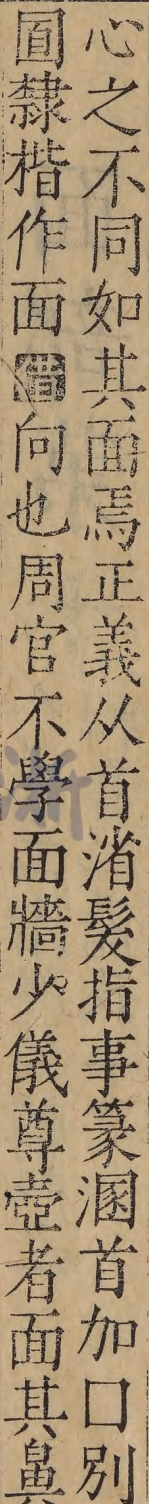 心之不同如其面焉正義从首渻髮指事篆溷首加囗別
圓隸楷作面向也周官不學面牆少儀尊壺者面其鼻